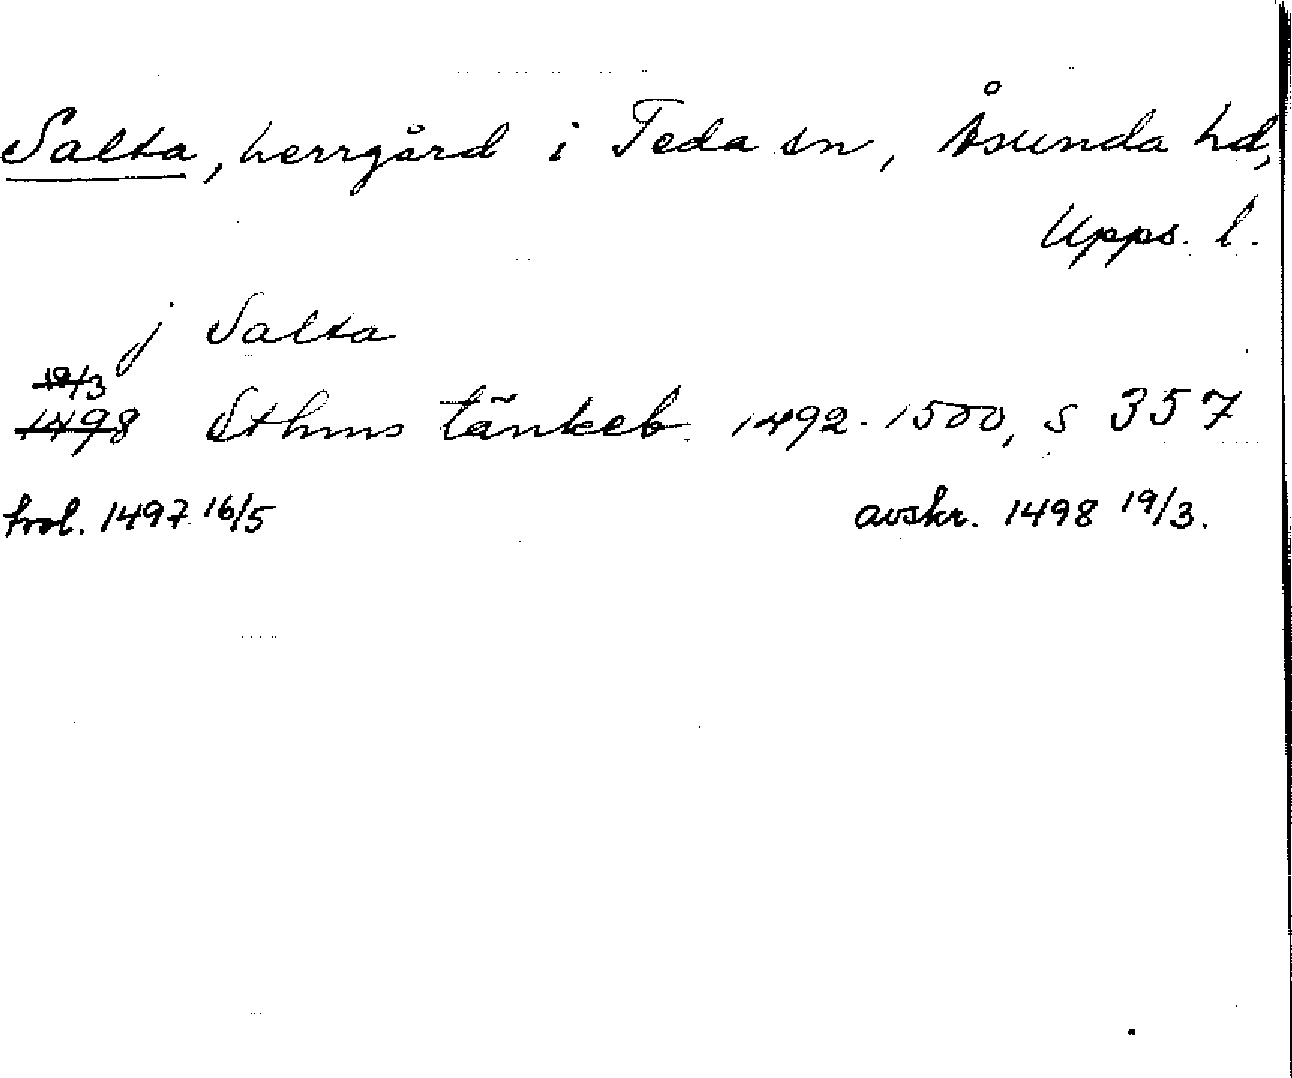 Salta, herrgård i Teda sn, Åsunda hd,
Upps. l.
j Salta
19/3
1498 Sthms tänkeb. 1492-1500, s 357
trol. 1497 16/5 avskr. 1498 19/3.